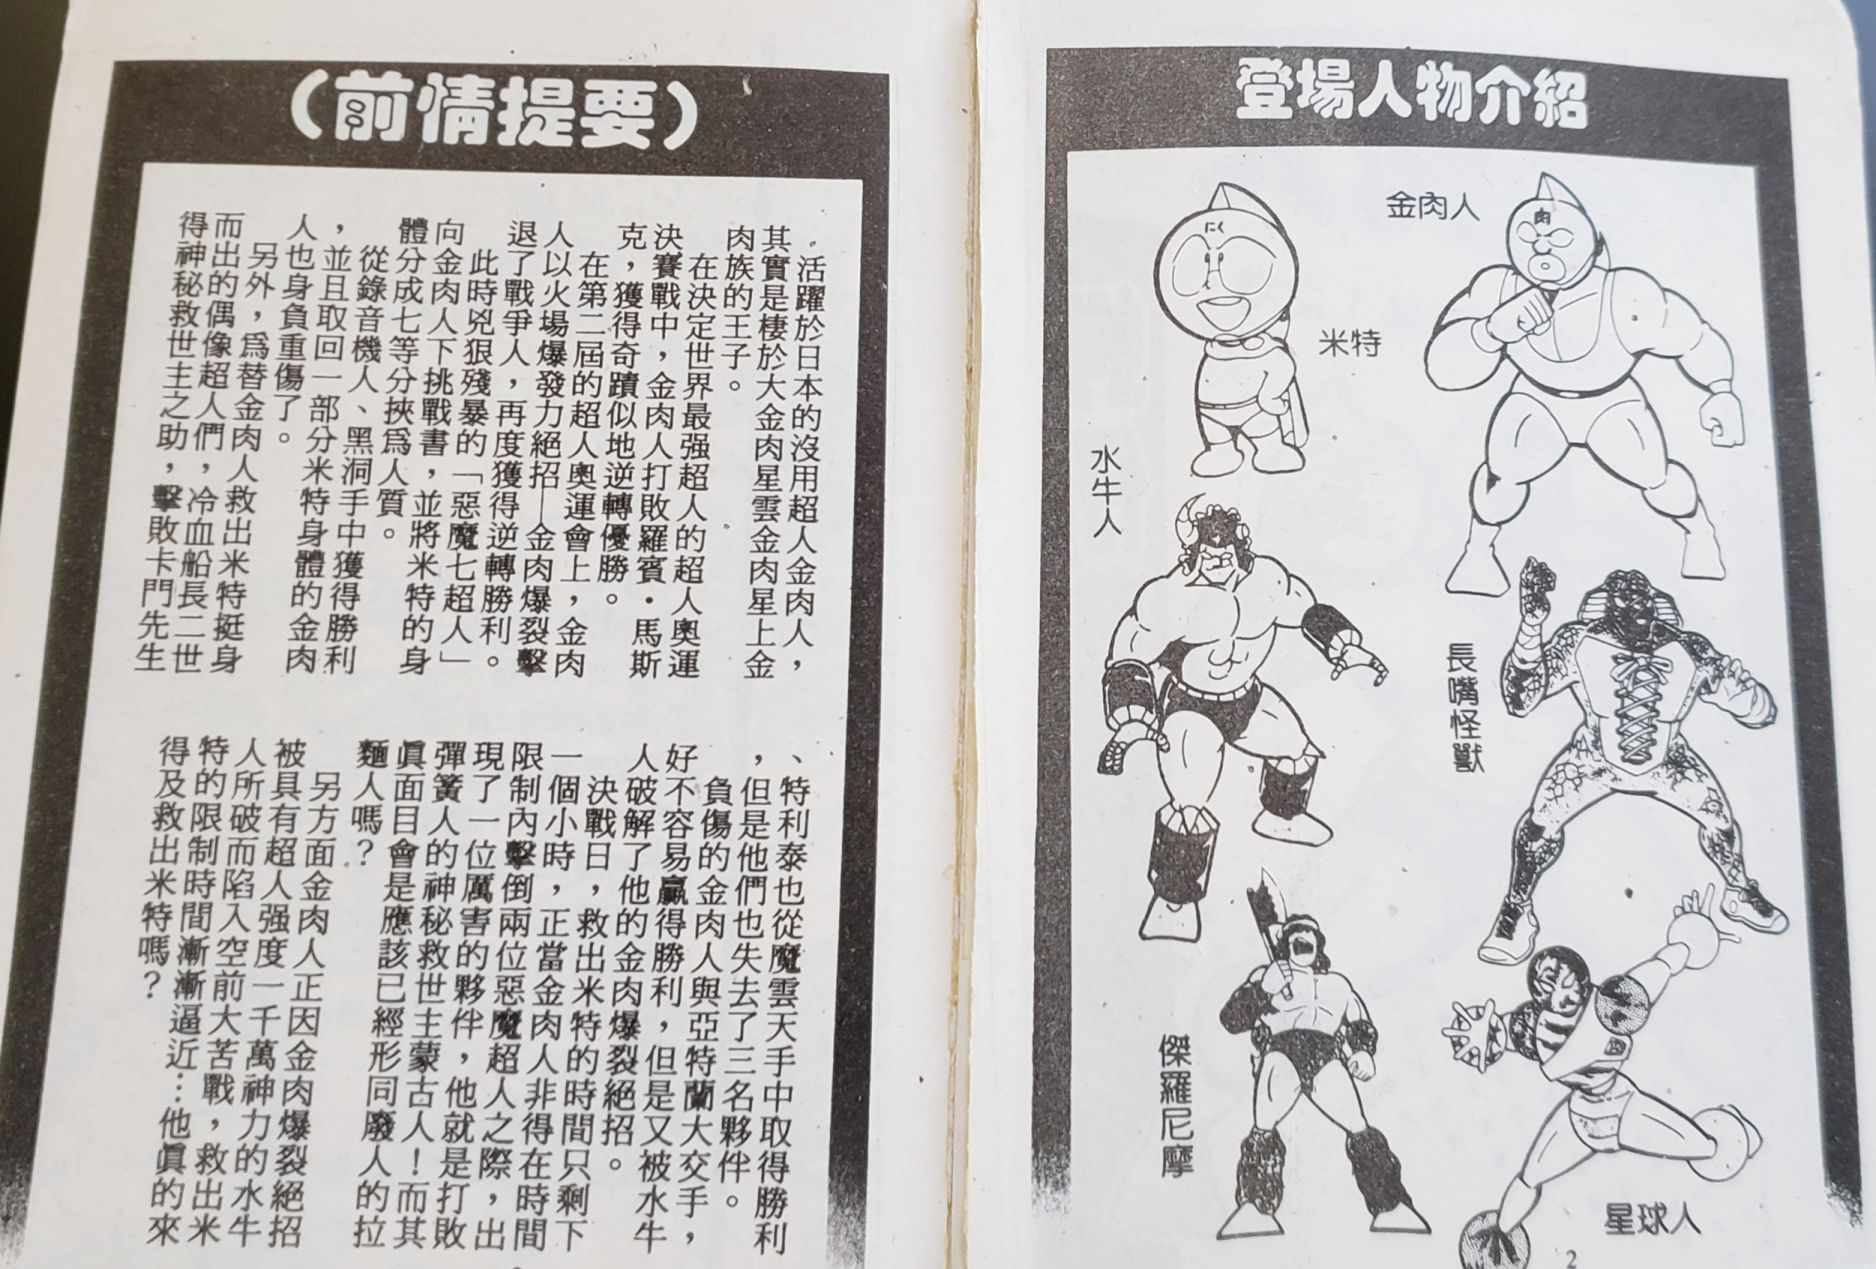 登場人物介紹
金肉人
米特
水牛人
長嘴怪獸
傑羅尼摩
星球人
肉
にく
2
（前情提要）
活躍於日本的沒用超人金肉人，
其實是棲於大金肉星雲金肉星上金
肉族的王子。
在決定世界最强超人的超人奧運
決賽戰中，金肉人打敗羅賓・馬斯
克，獲得奇蹟似地逆轉優勝。
在第二屆的超人奧運會上，金肉
人以火場爆發力絕招—金肉爆裂擊
退了戰爭人，再度獲得逆轉勝利。
此時兇狠殘暴的「惡魔七超人」
向金肉人下挑戰書，並將米特的身
體分成七等分挾爲人質。
從錄音機人、黑洞手中獲得勝利
，並且取回一部分米特身體的金肉
人也身負重傷了。
另外，爲替金肉人救出米特挺身
而出的偶像超人們，冷血船長二世
得神秘救世主之助，擊敗卡門先生
、特利泰也從魔雲天手中取得勝利
，但是他們也失去了三名夥伴。
負傷的金肉人與亞特蘭大交手，
好不容易贏得勝利，但是又被水牛
人破解了他的金肉爆裂絕招。
決戰日，救出米特的時間只剩下
一個小時，正當金肉人非得在時間
限制內擊倒兩位惡魔超人之際，出
現了一位厲害的夥伴，他就是打敗
彈簧人的神秘救世主蒙古人！而其
眞面目會是應該已經形同廢人的拉
麵人嗎？
另方面金肉人正因金肉爆裂絕招
被具有超人强度一千萬神力的水牛
人所破而陷入空前大苦戰，救出米
特的限制時間漸漸逼近…他眞的來
得及救出米特嗎？